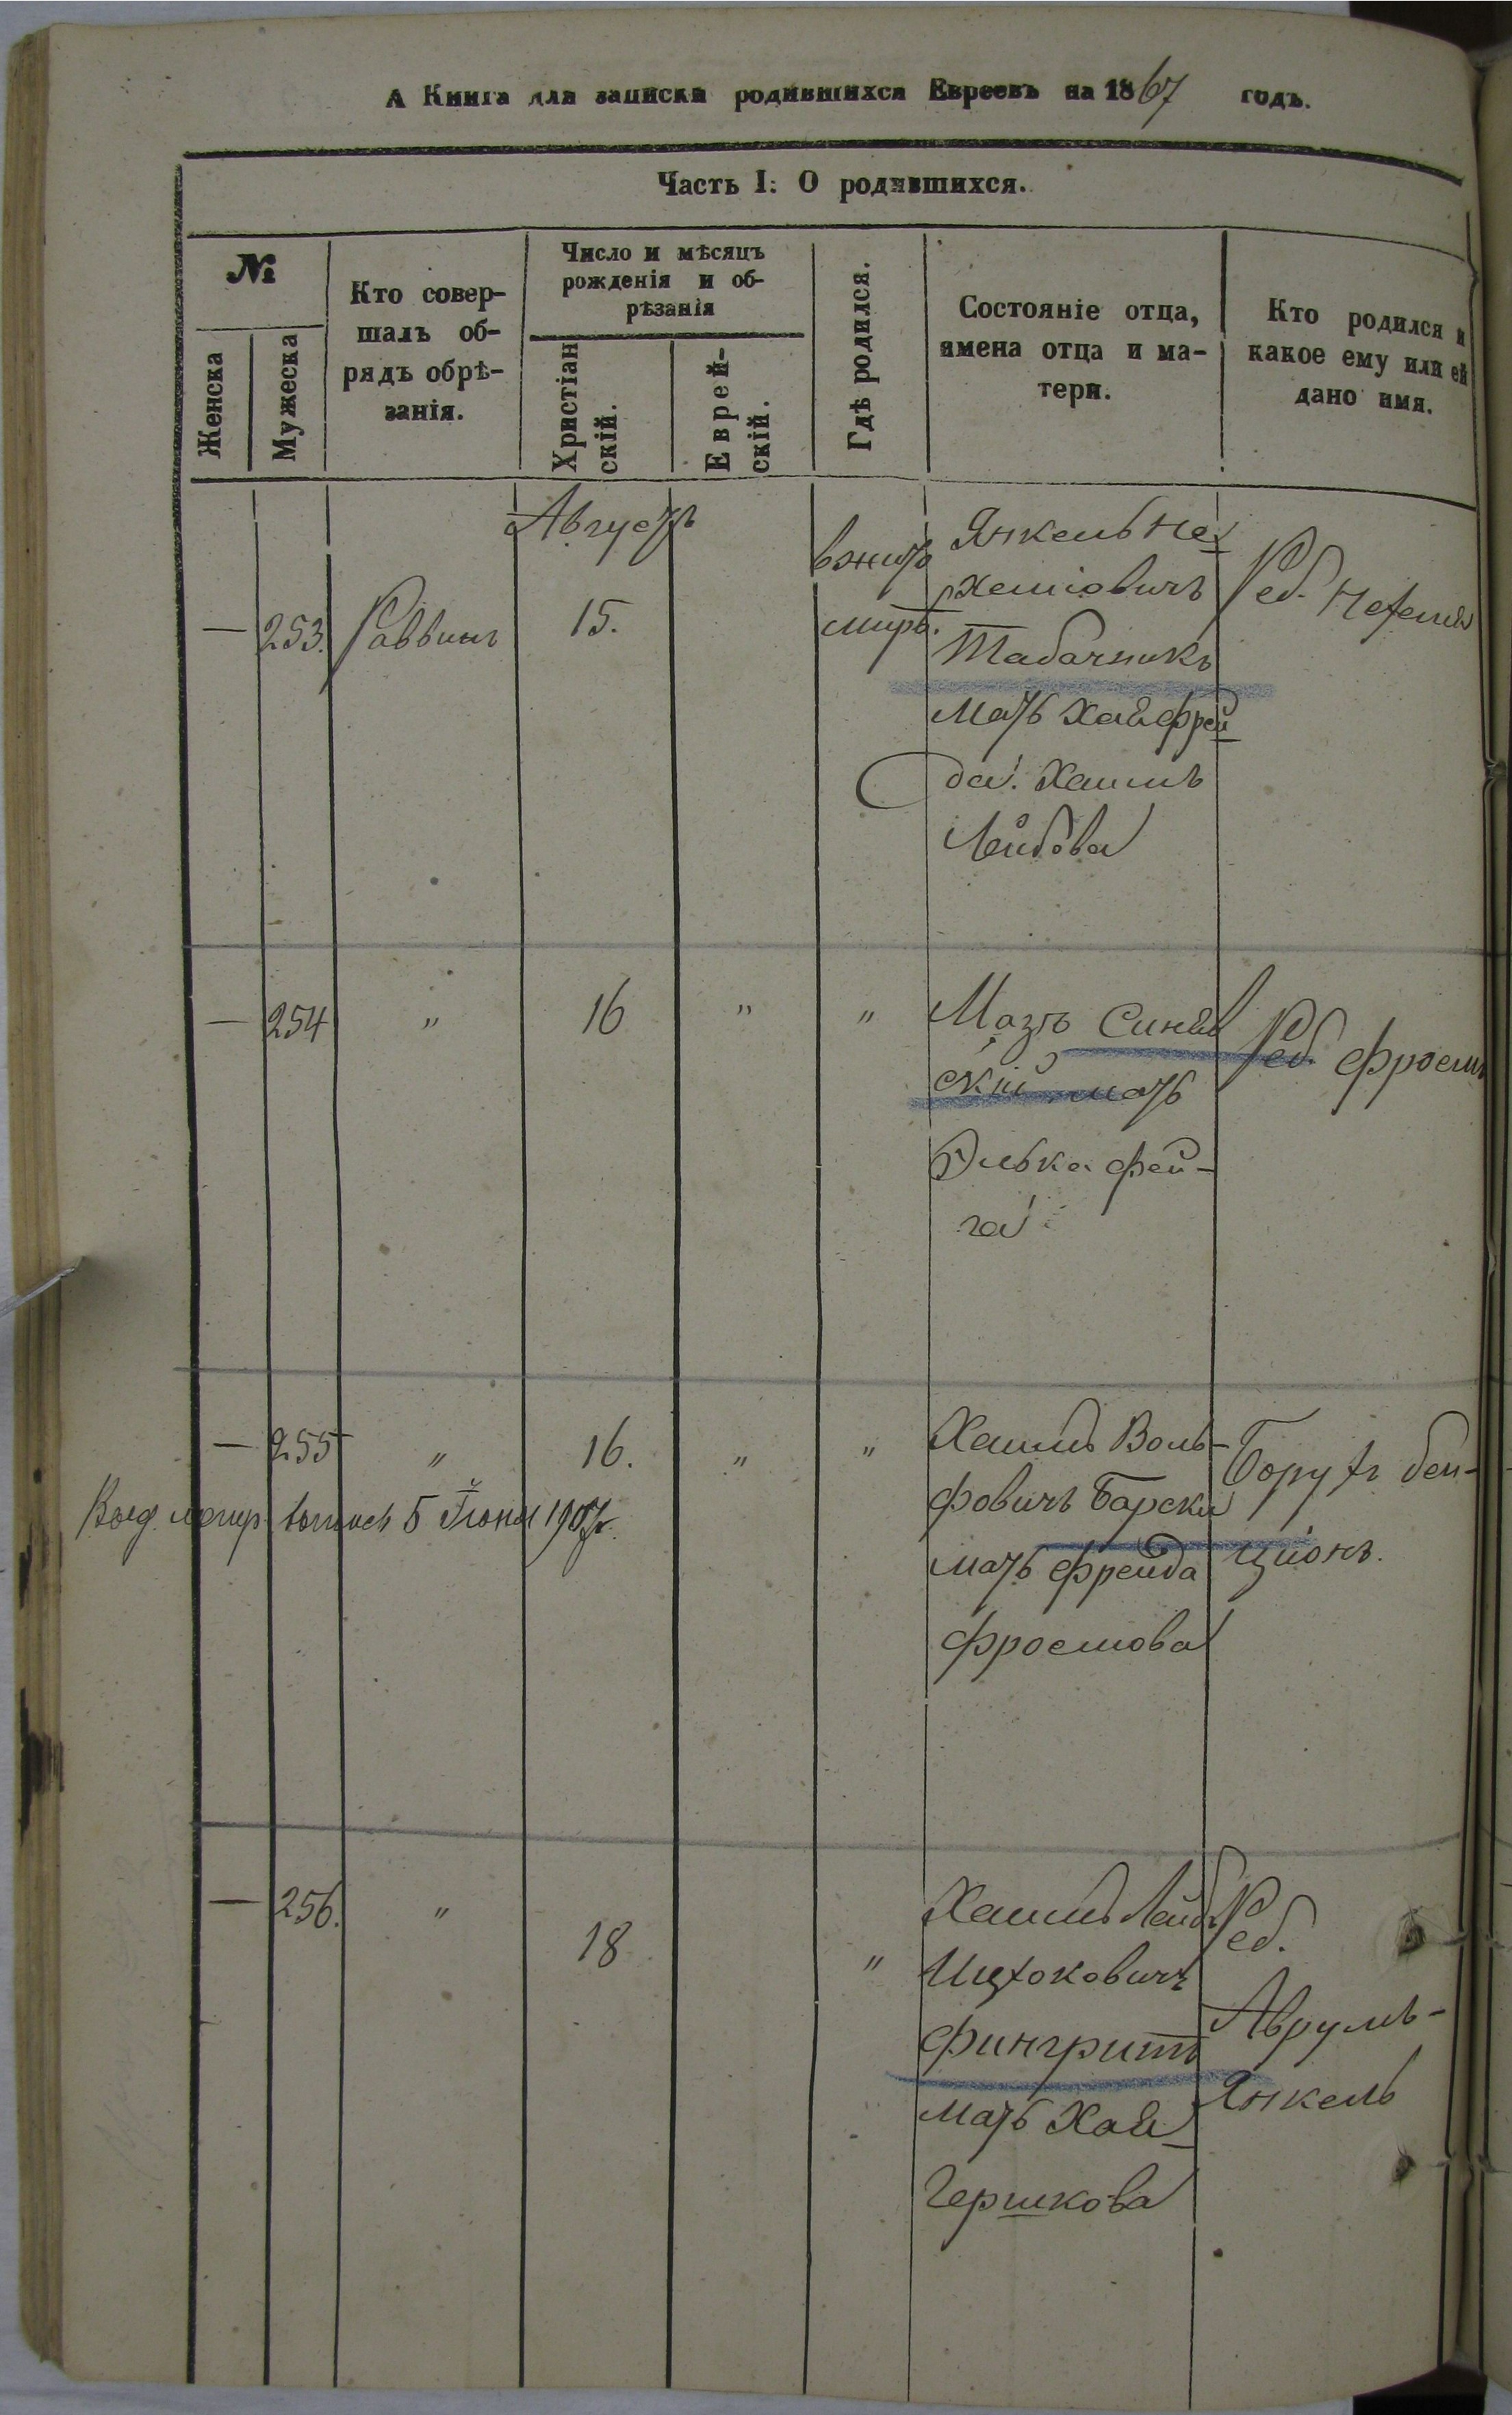 А Книга для записки родившихся Евреевъ на 1867 годъ.
Часть I: О родившихся.
№
Женска
Мужеска
Кто совер-
шалъ об-
рядъ обрѣ-
занія.
Число и мѣсяцъ
рожденія и об-
рѣзанія
Христіан
скій.
Еврей-
скій.
Гдѣ родился.
Состояніе отца,
имена отца и ма-
тери.
Кто родился и
какое ему или ей
дано имя.
Августъ
— 253. Раввинъ 15.
въ жито
миръ.
Янкель Не
хеміовичъ
Табачникъ
мать Хая Фрей
да. Хаимъ
Лейбова
Реб. Нехемія
— 254 " 16 " "
Мозъ Синяв
скій мать
Элька Фей-
га
Реб. Фроимъ
— 255 " 16. " "
5 Іюня 1907г.
Хаимъ Воль-
фовичъ Барскій
мать Фрейда
Фроимова
Борухъ бен-
ціонъ.
— 256. " 18 "
Хаимъ Лейбъ
Ицхоковичъ
Фингритъ
мать Хая
Гершкова
Реб.
Аврумъ-
Янкель